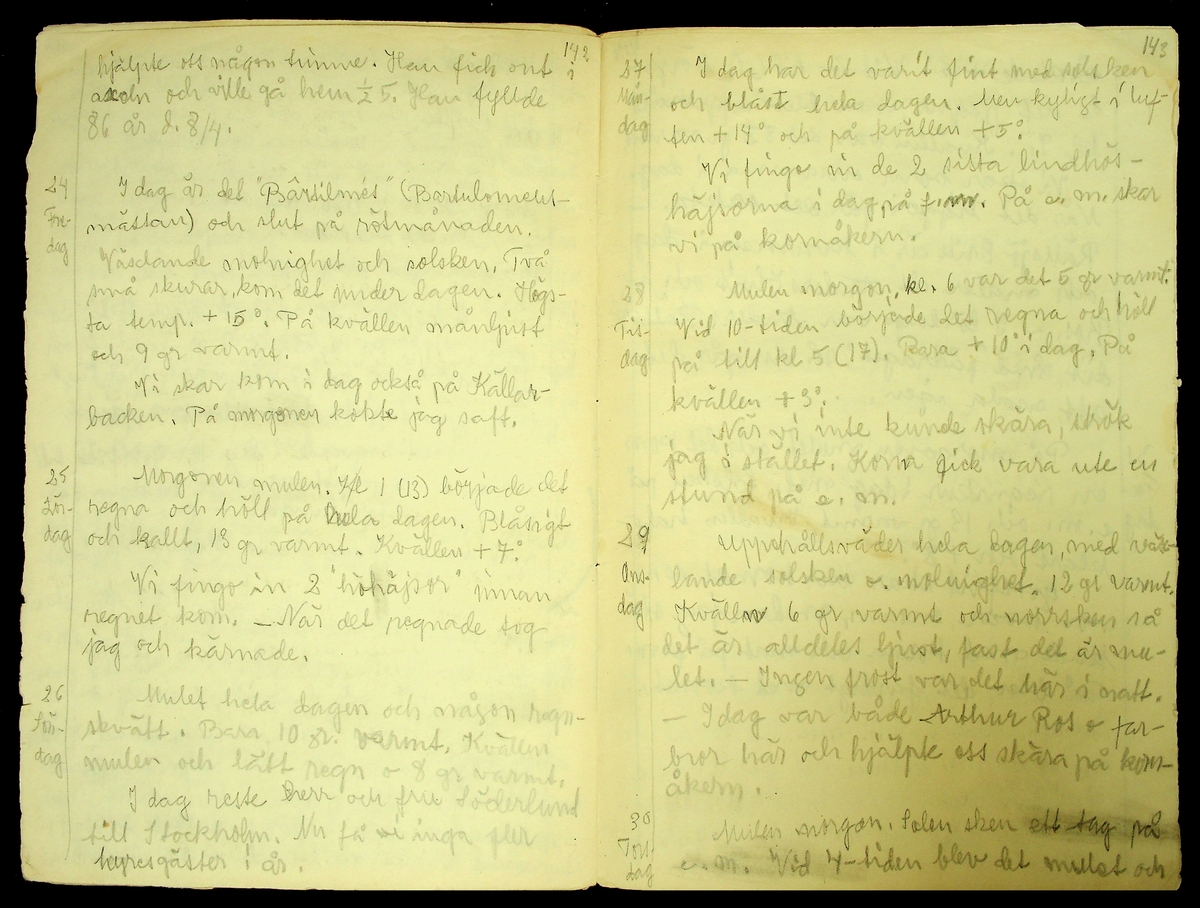 142
hjälpte oss någon timme. Han fick ont i
axeln och ville gå hem ½ 5. Han fyllde
86 år d. 8/4.
24
Fre-
dag
I dag är det "Bärtilmés" (Bartulomeus-
mässan) och slut på rötmånaden.
Växlande molnighet och solsken. Två
små skurar, kom det under dagen. Högs-
ta temp. + 15°. På kvällen månljust
och 9 gr varmt.
Vi skar korn i dag också på Källar-
backen. På morgonen kokte jag saft.
25
Lör-
dag
Morgonen mulen. Kl 1 (13) började det
regna och höll på hela dagen. Blåsigt
och kallt, 13 gr varmt. Kvällen + 7°.
Vi fingo in 2 "höhäjsor" innan
regnet kom. — När det regnade tog
jag och kärnade.
26
Sön-
dag
Mulet hela dagen och någon regn-
skvätt. Bara 10 gr. varmt. Kvällen
mulen och lätt regn o 8 gr varmt.
I dag reste herr och fru Söderlund
till Stockholm. Nu få vi inga fler
hyresgäster i år.
143
27
Mån-
dag
I dag har det varit fint med solsken
och blåst hela dagen. Men kyligt i luf-
ten + 14° och på kvällen + 5°.
Vi fingo in de 2 sista lindhös-
häjsorna i dag på f.m. På e. m. skar
vi på kornåkern.
28
Tis-
dag
Mulen morgon, kl. 6 var det 5 gr varmt.
Vid 10-tiden började det regna och höll
på till kl 5 (17). Bara + 10° i dag. På
kvällen + 3°.
När vi inte kunde skära, strök
jag i stället. Korna fick vara ute en
stund på e. m.
29
Ons-
dag
Uppehållsväder hela dagen, med väx-
lande solsken o. molnighet. 12 gr varmt.
Kvällen 6 gr varmt och norrsken så
det är alldeles ljust, fast det är mu-
let. — Ingen frost var det här i natt.
— I dag var både Arthur Ros o far-
bror här och hjälpte oss skära på korn-
åkern.
30
Tors-
dag
Mulen morgon. Solen sken ett tag på
e. m. Vid 7-tiden blev det mulet och